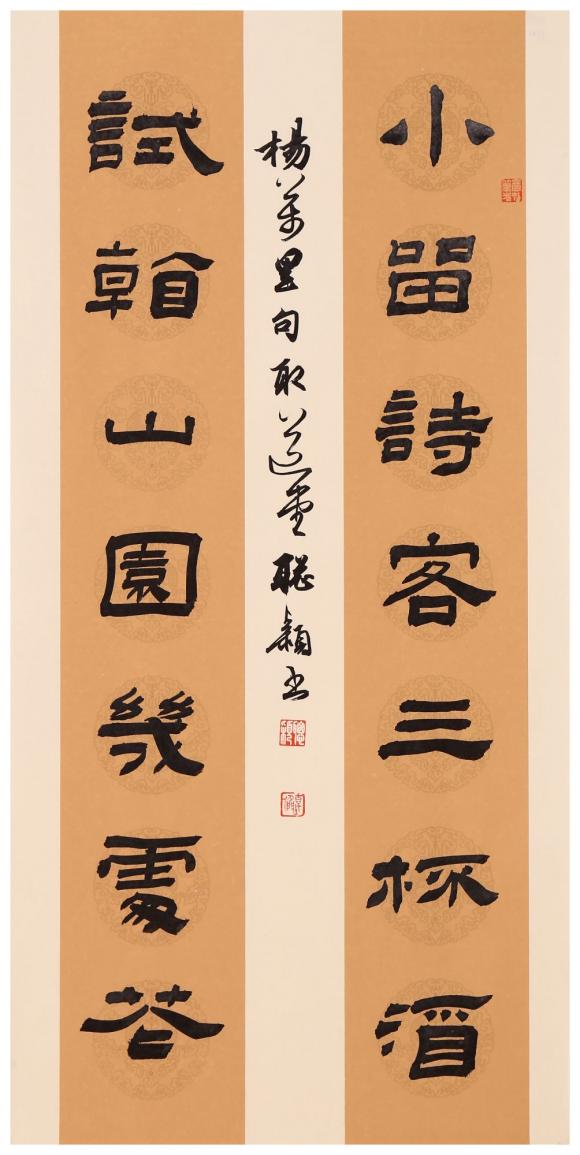 小留詩客三杯酒
試看山園幾處花
楊萬里句取道堂聰穎書